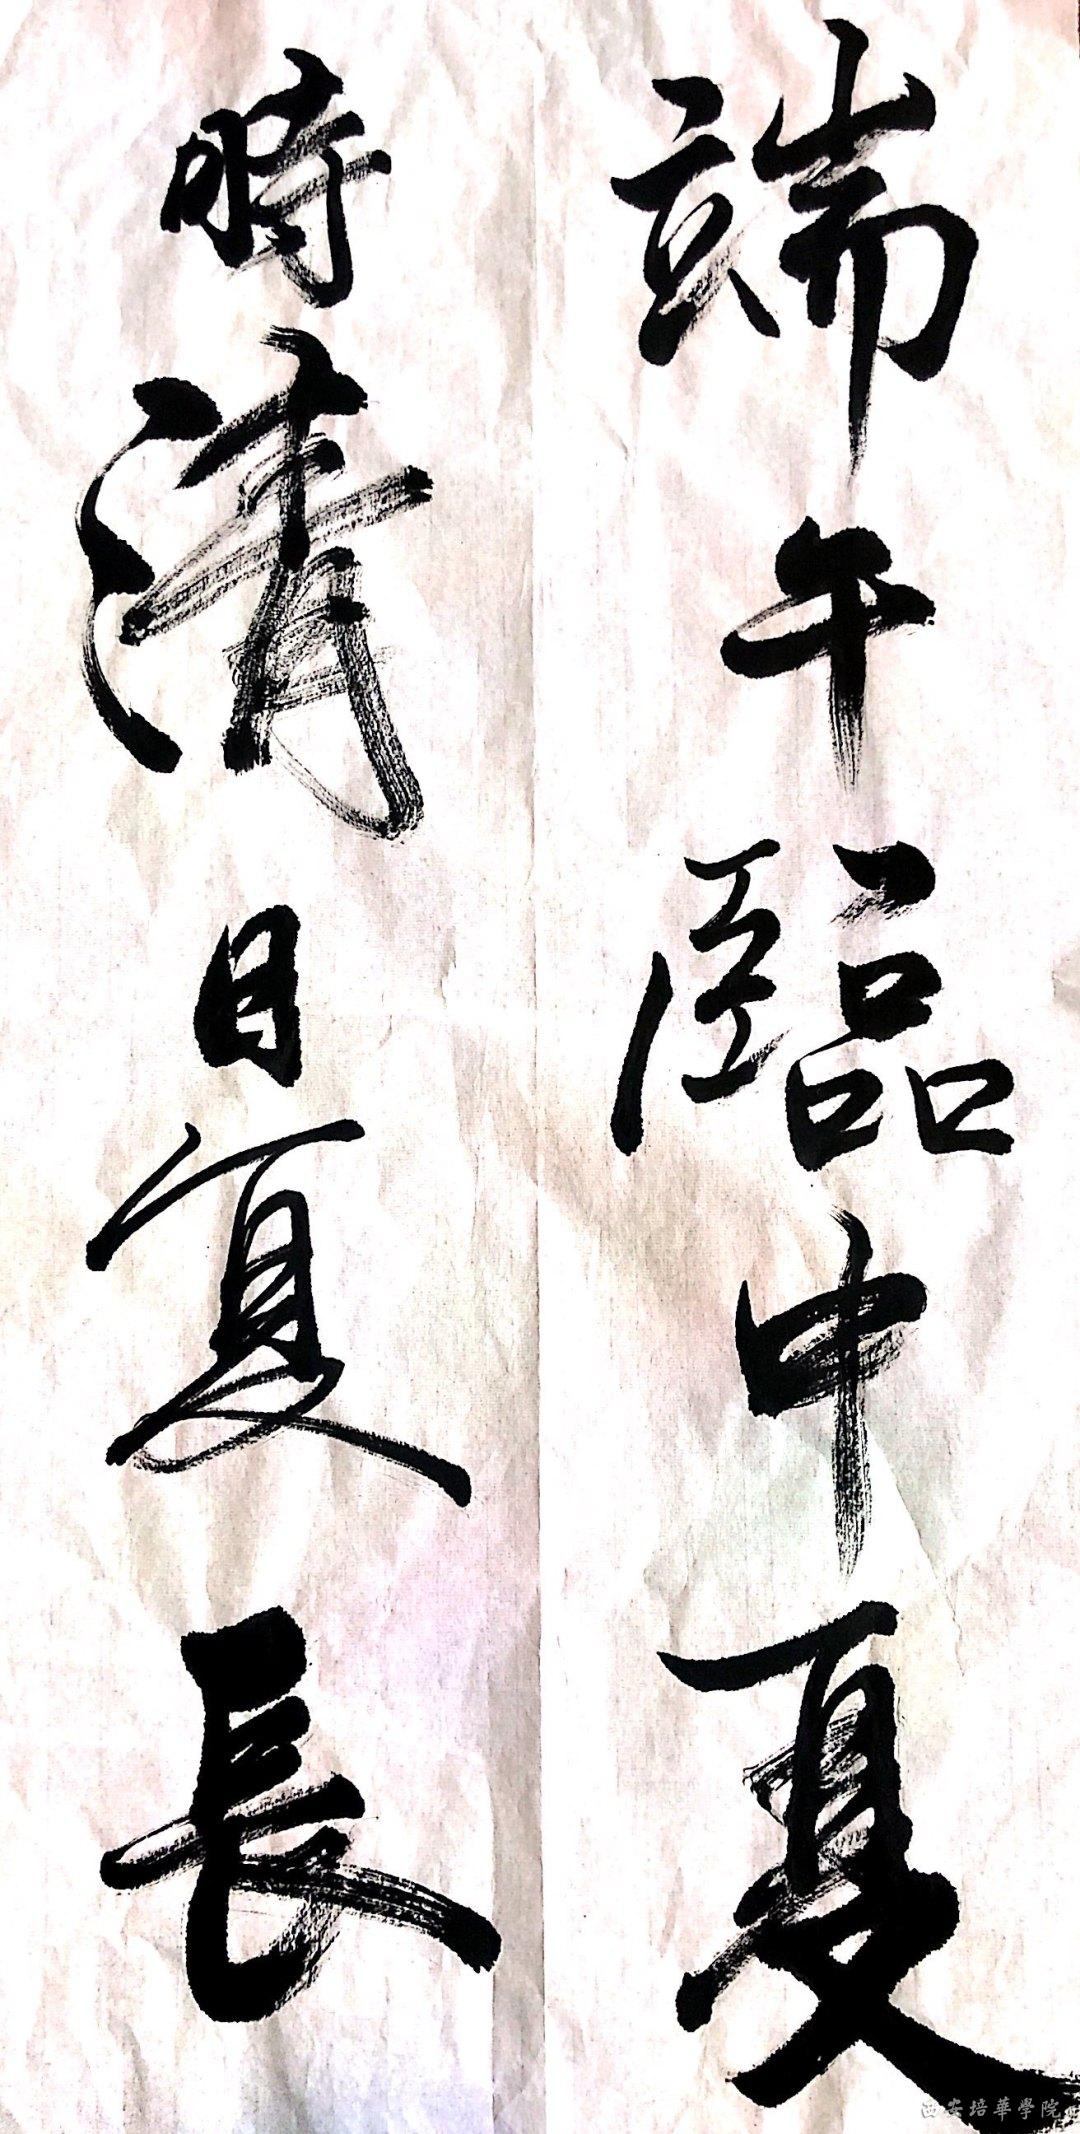 端午臨中夏
時清日复長
西安培華學院